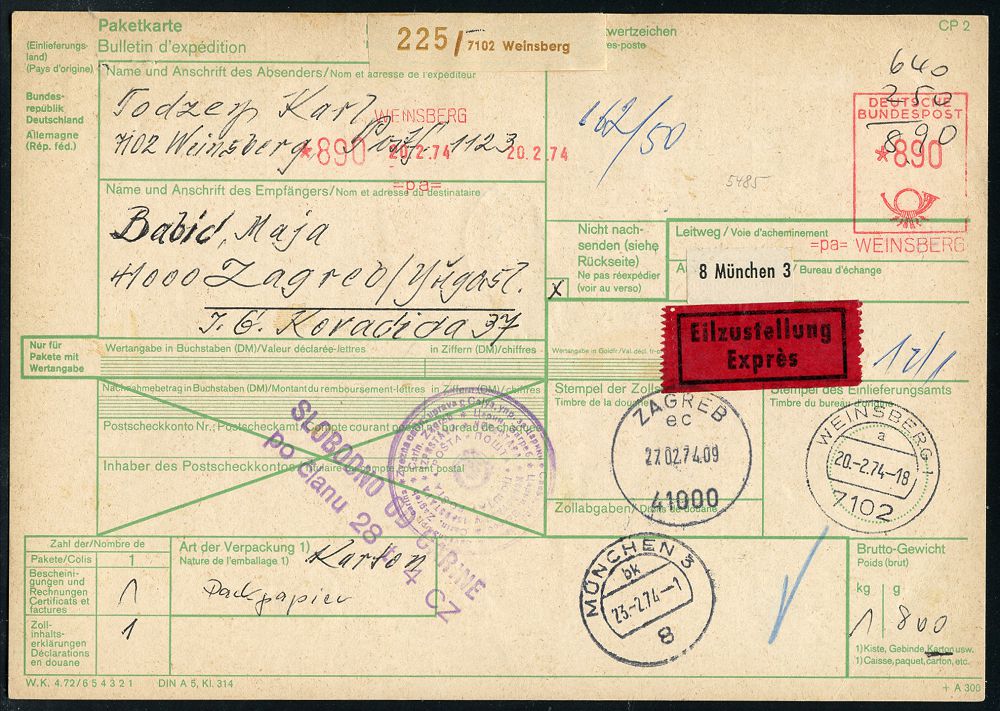 Paketkarte
Bulletin d'expédition
(Einlieferungs-
land)
(Pays d'origine)
Bundes-
republik
Deutschland
Allemagne
(Rép. féd.)
225/7102 Weinsberg
twertzeichen
es-poste
CP 2
640
250
890
Name und Anschrift des Absenders/Nom et adresse de l'expéditeur
Karl
7102 Weinsberg Postf. 1123
WEINSBERG
*890 20.2.74 20.2.74
=pa=
162/50
5485
DEUTSCHE
BUNDESPOST
*890
=pa= WEINSBERG
Name und Anschrift des Empfängers/Nom et adresse du destinataire
Babić, Maja
41000 Zagreb/Yugosl.
37
Nicht nach-
senden (siehe
Rückseite)
Ne pas réexpédier
(voir au verso)
x
Leitweg / Voie d'acheminement
/ Bureau d'échange
8 München 3
Eilzustellung
Exprès
Nur für
Pakete mit
Wertangabe
Wertangabe in Buchstaben (DM)/Valeur déclarée-lettres
in Ziffern (DM)/chiffres
Nachnahmebetrag in Buchstaben (DM)/Montant du remboursement-lettres
in Ziffern (DM)/chiffres
Postscheckkonto Nr.; Postscheckamt/Compte courant postal; bureau de chèques
Inhaber des Postscheckkontos/Titulaire du compte courant postal
SLOBODNO OD CARINE
po članu 28 t. 4 CZ
Stempel der Zollst
Timbre de la douane
ZAGREB
ec
27.02.74.09
41000
Stempel des Einlieferungsamts
Timbre du bureau d'origine
WEINSBERG 1
a
20.-2.74-18
7102
Zollabgaben/Droits de douane
Zahl der/Nombre de
Pakete/Colis
1
Bescheini-
gungen und
Rechnungen
Certificats et
factures
1
Zoll-
inhalts-
erklärungen
Déclarations
en douane
1
Art der Verpackung 1)
Nature de l'emballage 1)
Karton
Packpapier
MÜNCHEN 3
bk
23.-2.74-1
8
Brutto-Gewicht
Poids (brut)
kg g
1 800
1) Kiste, Gebinde, Karton usw.
1) Caisse, paquet, carton, etc.
W.K. 4.72/6 5 4 3 2 1
DIN A 5, Kl. 314
+ A 300